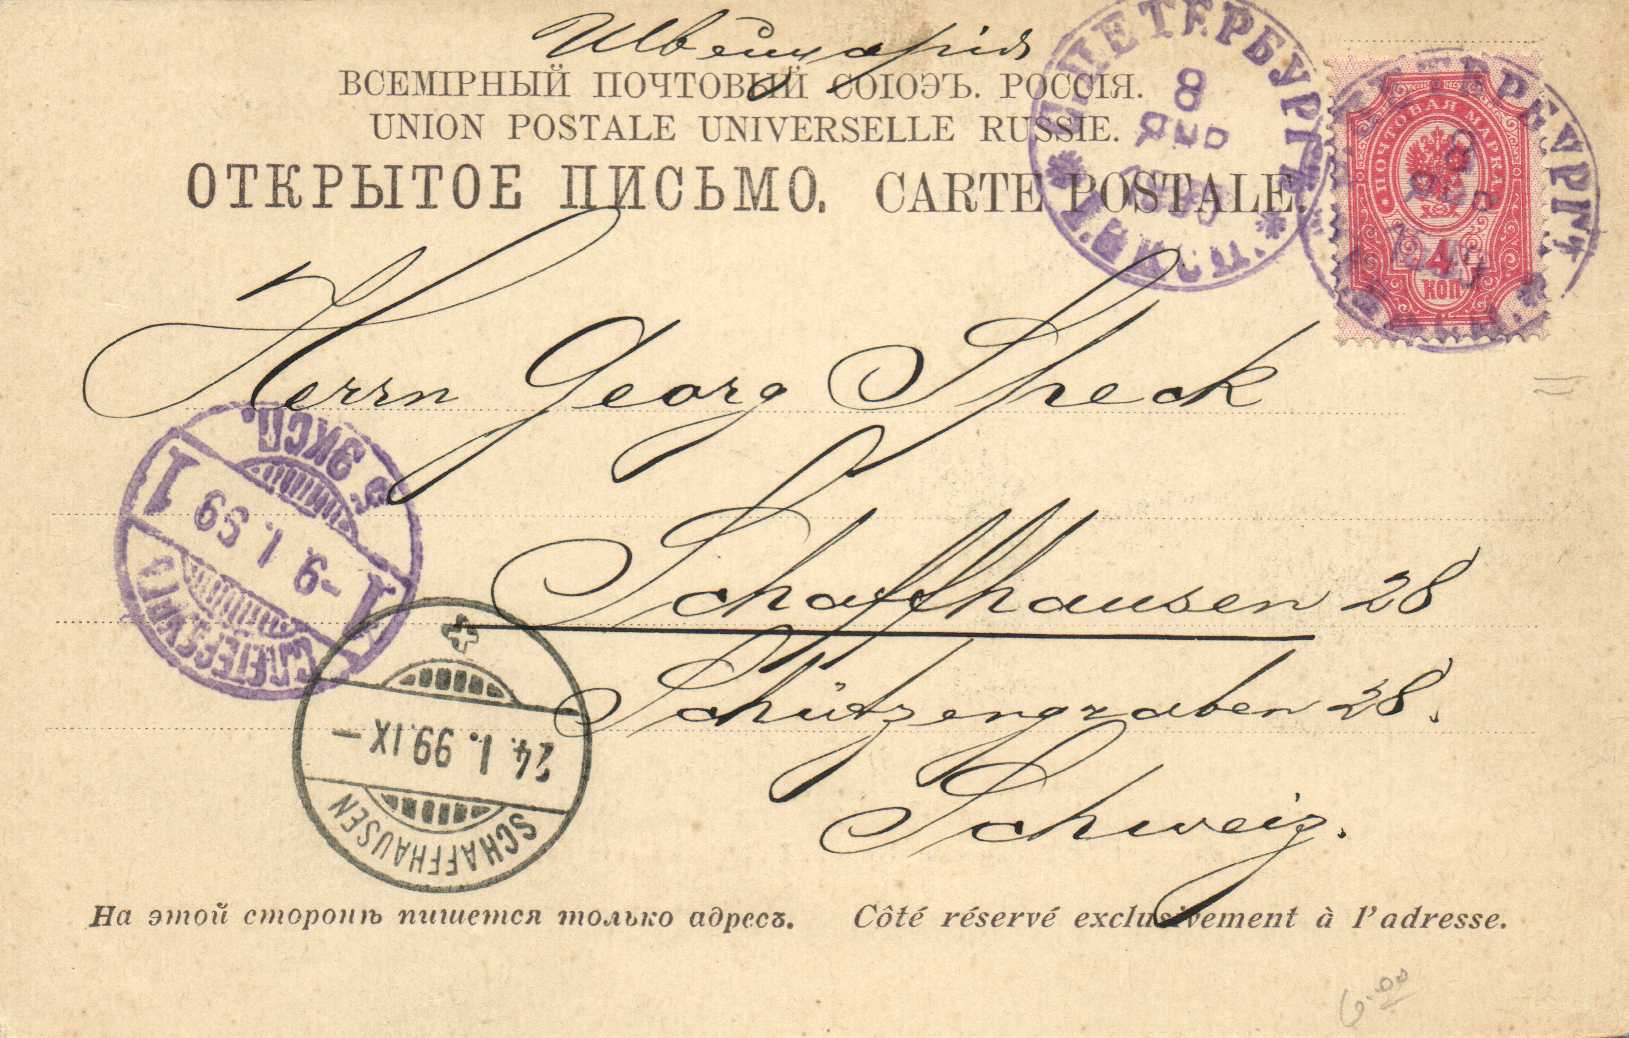 Швейцарія
ВСЕМІРНЫЙ ПОЧТОВЫЙ СОЮЗЪ. РОССІЯ.
UNION POSTALE UNIVERSELLE RUSSIE.
ОТКРЫТОЕ ПИСЬМО. CARTE POSTALE.
С.ПЕТЕРБУРГЪ
8
ЯНВ
ПОЧТОВАЯ МАРКА
4
КОП
8
Herrn Georg Speck
Schaffhausen 28
Schützengraben 28.
Schweiz.
С.ПЕТЕРБУРГЪ
-9. 1. 99
1 1
ЭКСП.
SCHAFFHAUSEN
24. 1. 99. IX –
На этой сторонѣ пишется только адресъ. Côté réservé exclusivement à l'adresse.
6.00